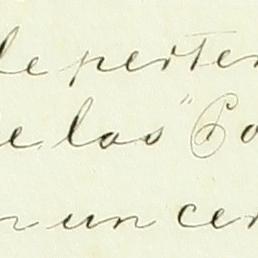 le perten
e las "Co
n un cer